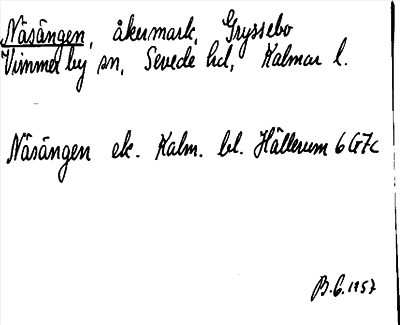 Näsängen, åkermark, Gryssebo
Vimmerby sn, Sevede hd, Kalmar l.
Näsängen ek. Kalm. bl. Hällerum 6G7c
B.G. 1957